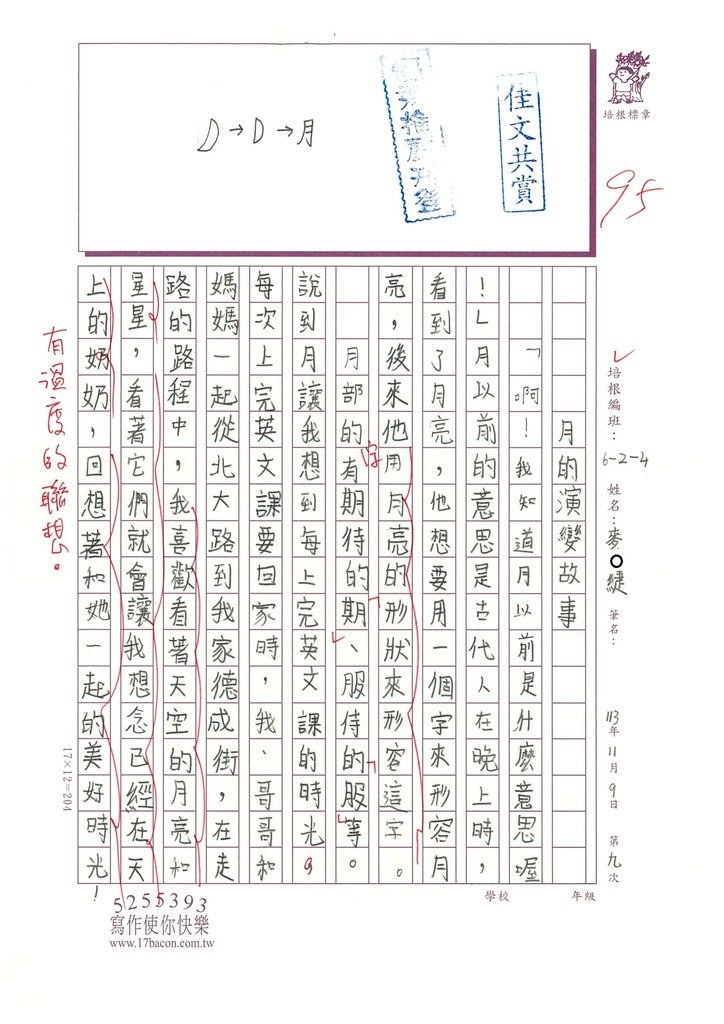 D→D→月
優秀推薦刊登
佳文共賞
培根標章
95
培根編班：6-2-4 姓名：麥○緁 筆名： 113年11月9日 第九次
月的演變故事
「啊！我知道月以前是什麼意思喔
！」月以前的意思是古代人在晚上時，
看到了月亮，他想要用一個字來形容月
亮，後來他用月亮的形狀來形容這字。
月部的有期待的期、服侍的服等。
字
說到月讓我想到每上完英文課的時光，
每次上完英文課要回家時，我、哥哥和
媽媽一起從北大路到我家德成街，在走
路的路程中，我喜歡看著天空的月亮和
星星，看著它們就會讓我想念已經在天
上的奶奶，回想著和她一起的美好時光！
有溫度的聯想。
17×12=204
學校 年級
5255393
寫作使你快樂
www.17bacon.com.tw